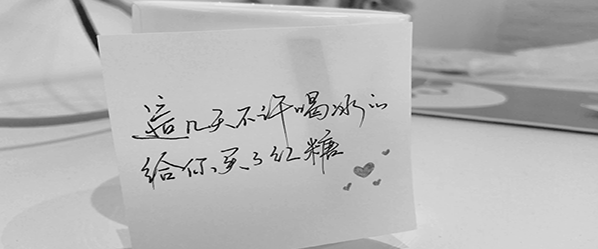 這几天不许喝冰的
给你买了红糖